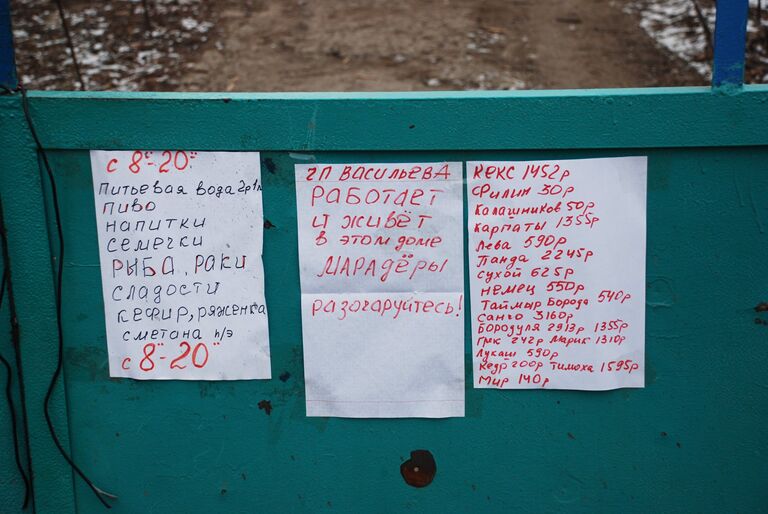 с 8⁰⁰-20⁰⁰
Питьевая вода 2р 1л
пиво
напитки
семечки
РЫБА, РАКИ
сладости
кефир, ряженка
сметана п/э
с 8⁰⁰-20⁰⁰
гп ВАСИЛЬЕВА
РАБОТАЕТ
И ЖИВЁТ
в этом доме
МАРАДЁРЫ
РАЗОЧАРУЙТЕСЬ!
КЕКС 1452р
Филин 30р
Калашников 50р
КАРПАТЫ 1355р
Лева 590р
Панда 2245р
Сухой 625р
НЕМЕЦ 550р
Таймыр Борода 540р
Санчо 3160р
Бородуля 2913р 1355р
Грк 242р Марик 1310р
Лукаш 590р
Кедр 200р Тимоха 1595р
Мир 140р